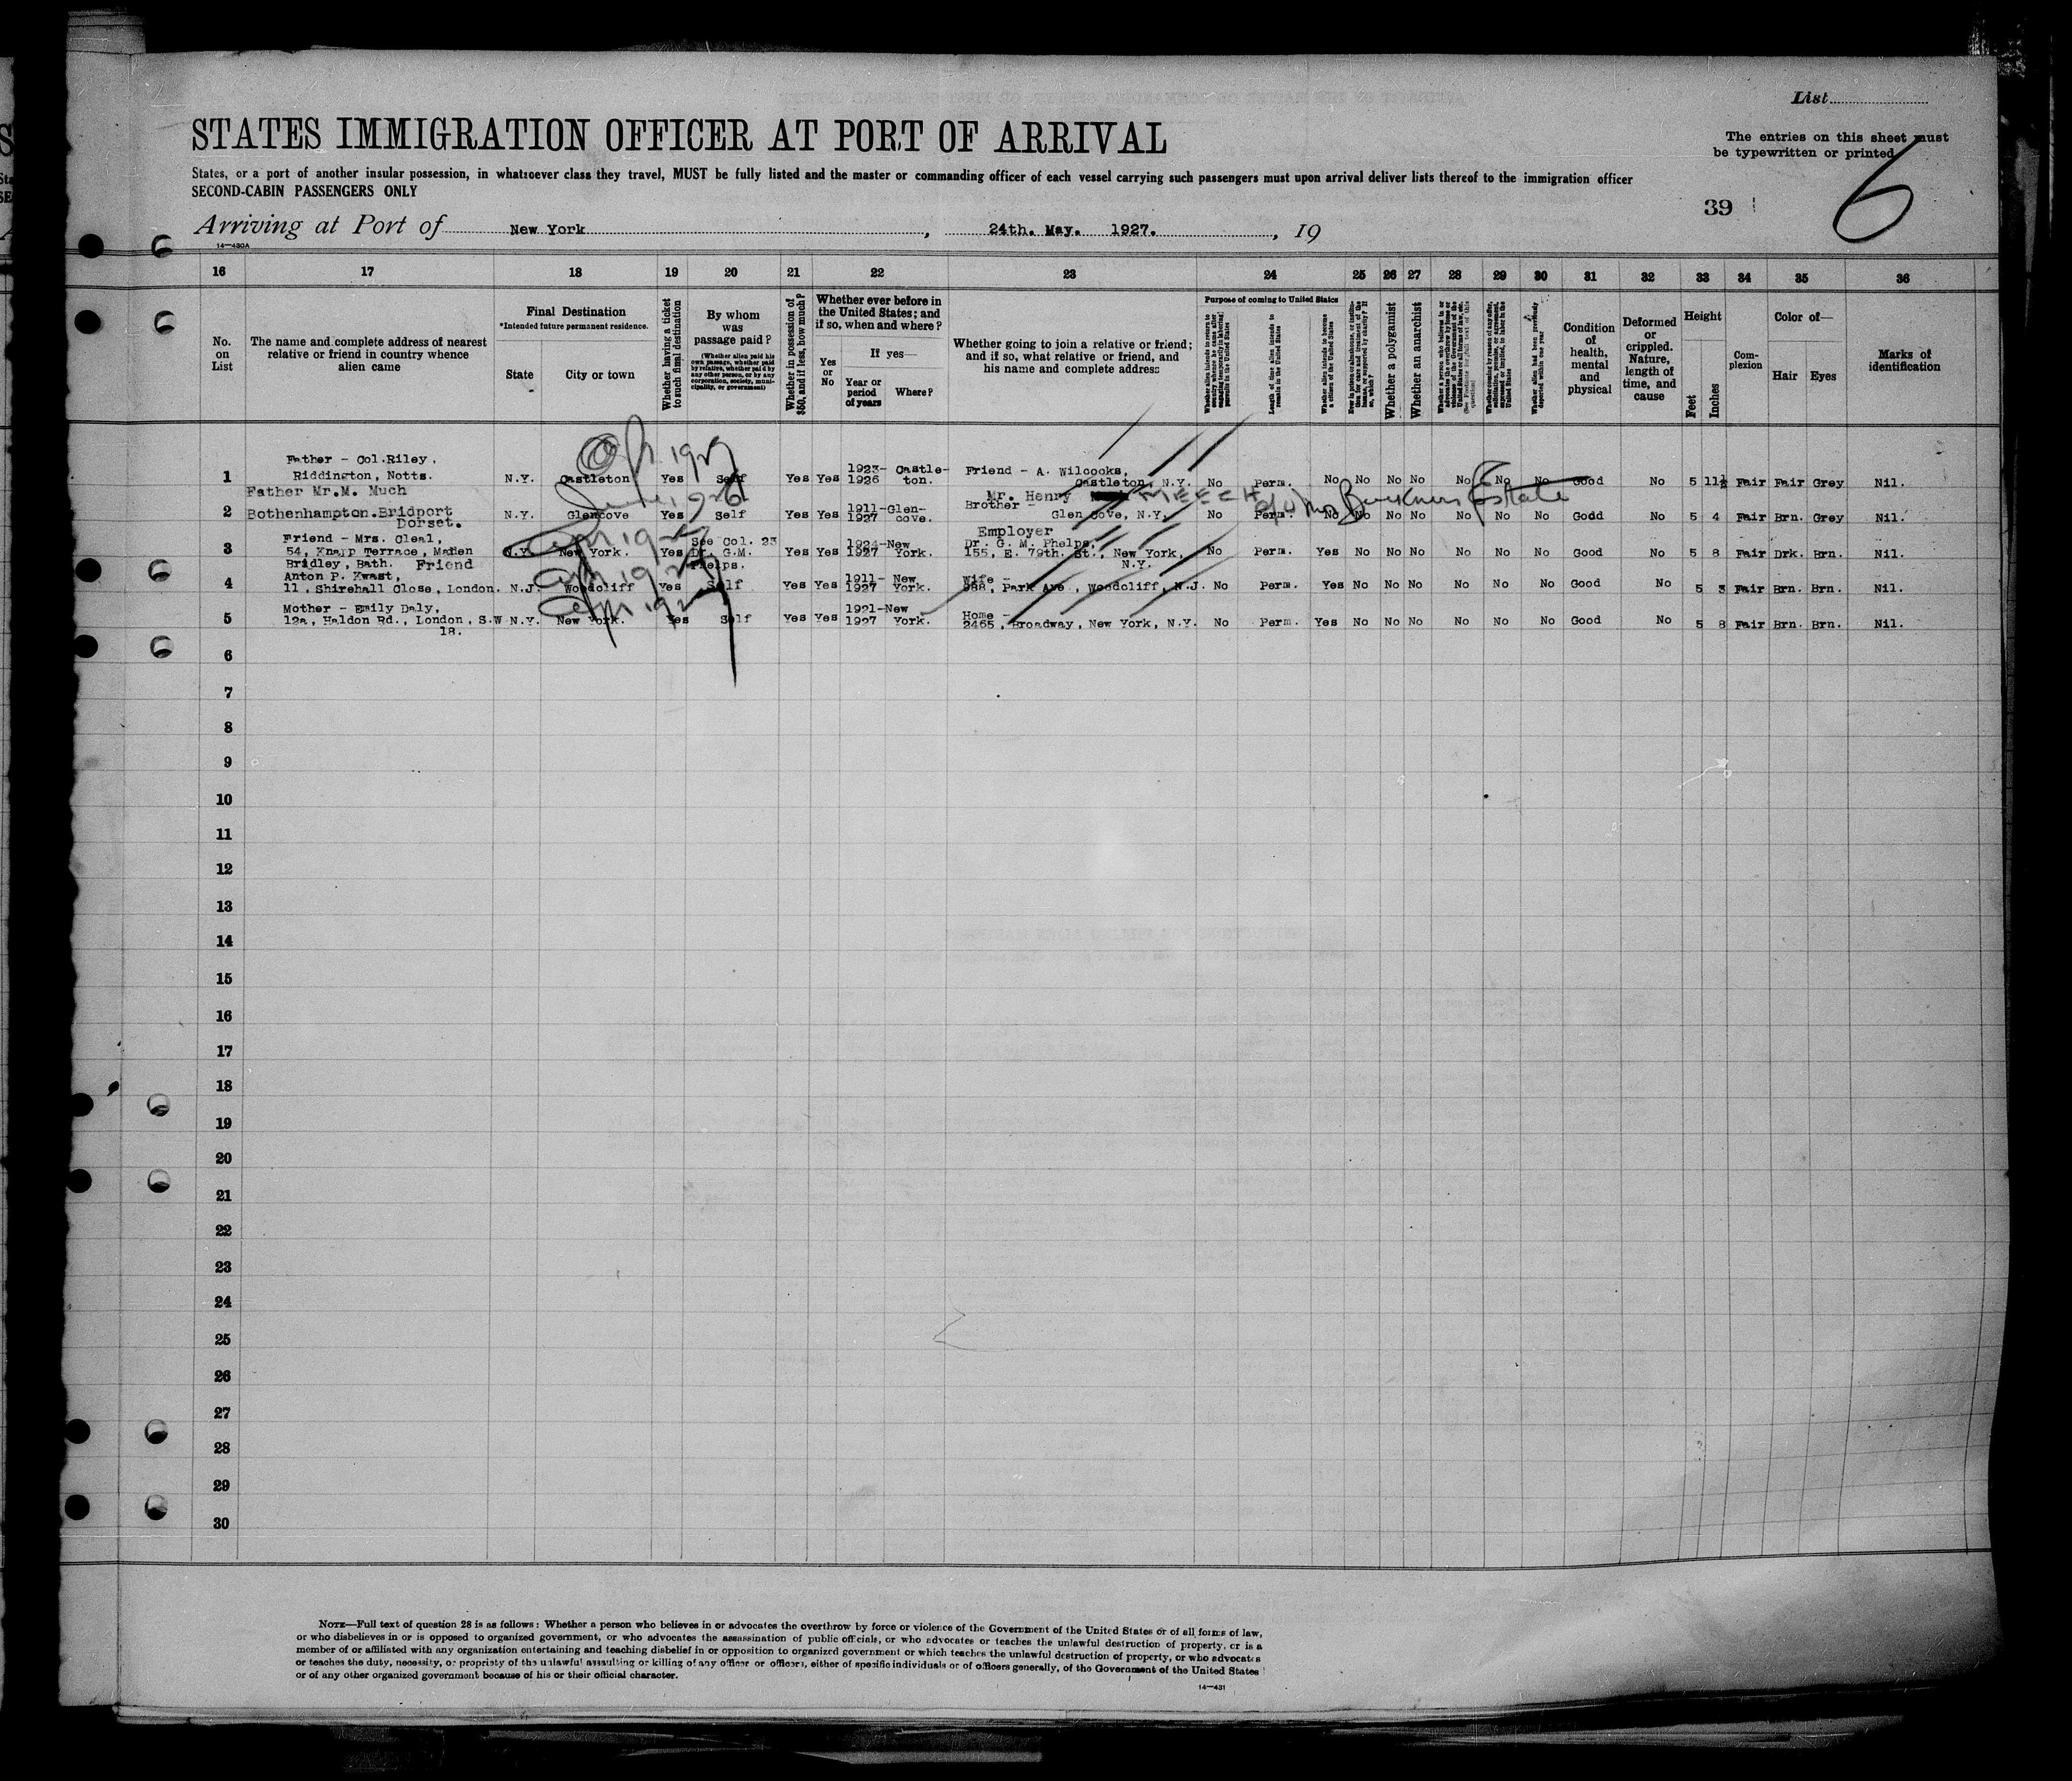 List
STATES IMMIGRATION OFFICER AT PORT OF ARRIVAL
The entries on this sheet must
be typewritten or printed
States, or a port of another insular possession, in whatsoever class they travel, MUST be fully listed and the master or commanding officer of each vessel carrying such passengers must upon arrival deliver lists thereof to the immigration officer
SECOND-CABIN PASSENGERS ONLY
39
6
Arriving at Port of New York, 24th. May. 1927., 19
14—430A
16 17 18 19 20 21 22 23 24 25 26 27 28 29 30 31 32 33 34 35 36
No. on List
The name and complete address of nearest relative or friend in country whence alien came
Final Destination
*Intended future permanent residence.
State
City or town
Whether having a ticket to such final destination
By whom was passage paid?
(Whether alien paid his own passage, whether paid by relative, whether paid by any other person, or by any corporation, society, municipality, or government)
Whether in possession of $50, and if less, how much?
Whether ever before in the United States; and if so, when and where?
Yes or No
If yes—
Year or period of years
Where?
Whether going to join a relative or friend; and if so, what relative or friend, and his name and complete address
Purpose of coming to United States
Length of time alien intends to remain in the United States
Whether alien intends to become a citizen of the United States
Whether a polygamist
Whether an anarchist
Whether alien had been previously deported within one year
Condition of health, mental and physical
Deformed or crippled. Nature, length of time, and cause
Height
Feet
Inches
Complexion
Color of—
Hair
Eyes
Marks of identification
1 Father - Col.Riley, Riddington, Notts. N.Y. Castleton Yes Self Yes Yes 1923-1926 Castleton. Friend - A. Wilcooks, Castleton, N.Y. No Perm. No No No No No No No Good No 5 11½ Fair Fair Grey Nil.
2 Father Mr.M. Much Bothenhampton.Bridport Dorset. N.Y. Glencove Yes Self Yes Yes 1911-1927 Glencove. Mr. Henry MEECH Brother - Glen Cove, N.Y. Estate No Perm. No No No No No No No Godd No 5 4 Fair Brn. Grey Nil.
3 Friend - Mrs. Cleal, 54, Knapp Terrace, Maden Bridley, Bath. N.Y. New York. Yes See Col. 23 Dr. G.M. Phelps. Yes Yes 1924-1927 New York. Employer Dr. G. M. Phelps, 155, E. 79th. St., New York, N.Y. No Perm. Yes No No No No No No Good No 5 8 Fair Drk. Brn. Nil.
4 Friend Anton P. Kwast, 11, Shirehall Close, London. N.J. Woodcliff Yes Self Yes Yes 1911-1927 New York. Wife - 988, Park Ave, Woodcliff, N.J. No Perm. Yes No No No No No No Good No 5 3 Fair Brn. Brn. Nil.
5 Mother - Emily Daly, 12a, Haldon Rd., London, S.W 18. N.Y. New York. Yes Self Yes Yes 1921-1927 New York. Home - 2465, Broadway, New York, N.Y. No Perm. Yes No No No No No No Good No 5 8 Fair Brn. Brn. Nil.
6
7
8
9
10
11
12
13
14
15
16
17
18
19
20
21
22
23
24
25
26
27
28
29
30
NOTE—Full text of question 28 is as follows: Whether a person who believes in or advocates the overthrow by force or violence of the Government of the United States or of all forms of law,
or who disbelieves in or is opposed to organized government, or who advocates the assassination of public officials, or who advocates or teaches the unlawful destruction of property, or is a
member of or affiliated with any organization entertaining and teaching disbelief in or opposition to organized government or which teaches the unlawful destruction of property, or who advocates
or teaches the duty, necessity, or propriety of the unlawful assaulting or killing of any officer or officers, either of specific individuals or of officers generally, of the Government of the United States
or of any other organized government because of his or their official character.
14—431